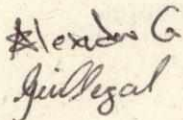 Alexander G
Guillegal